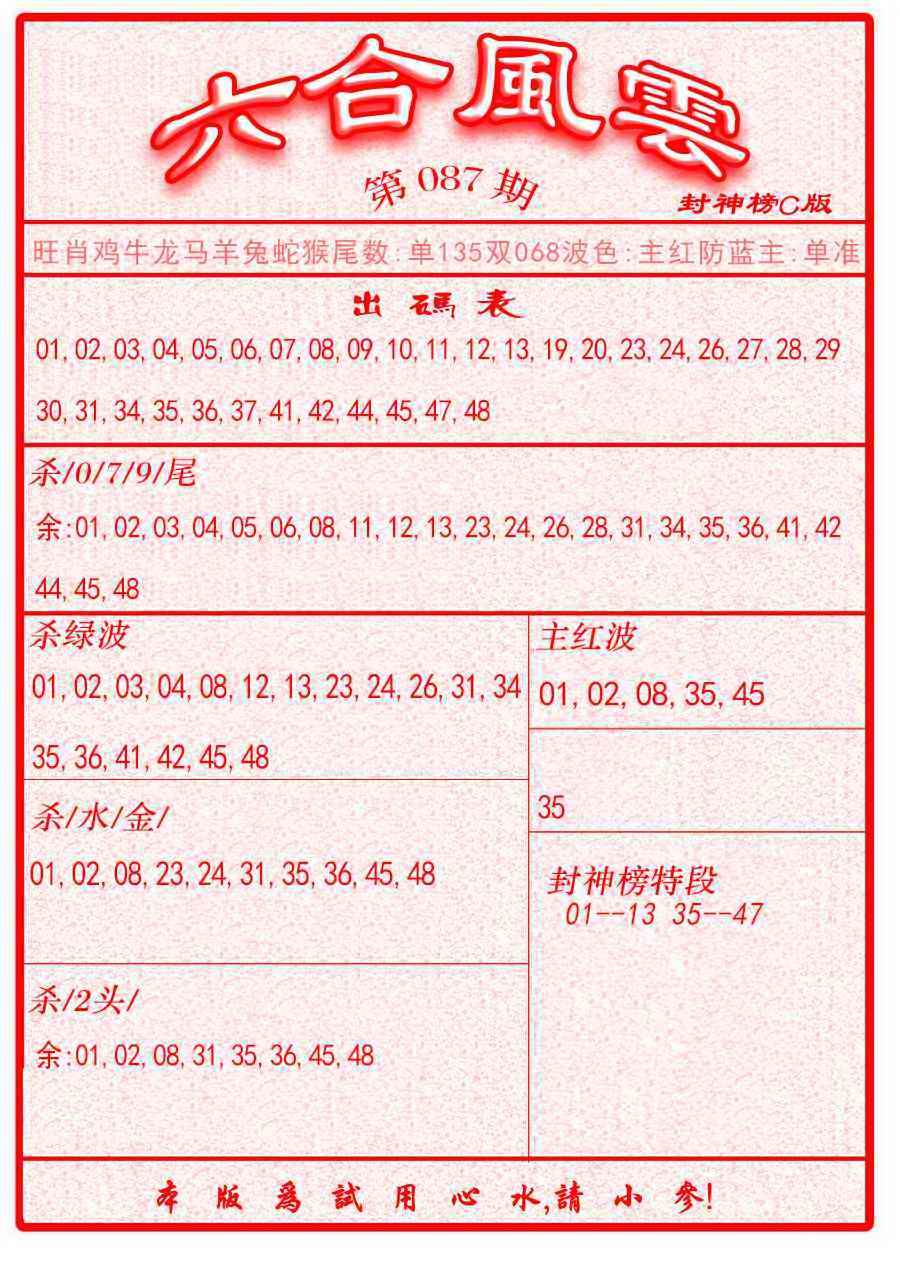 六合風雲
第087期
封神榜C版
旺肖鸡牛龙马羊兔蛇猴尾数:单135双068波色:主红防蓝主:单准
出碼表
01,02,03,04,05,06,07,08,09,10,11,12,13,19,20,23,24,26,27,28,29
30,31,34,35,36,37,41,42,44,45,47,48
杀/0/7/9/尾
余:01,02,03,04,05,06,08,11,12,13,23,24,26,28,31,34,35,36,41,42
44,45,48
杀绿波
01,02,03,04,08,12,13,23,24,26,31,34
35,36,41,42,45,48
主红波
01,02,08,35,45
35
杀/水/金/
01,02,08,23,24,31,35,36,45,48
封神榜特段
01--13 35--47
杀/2头/
余:01,02,08,31,35,36,45,48
本版爲試用心水,請小參!